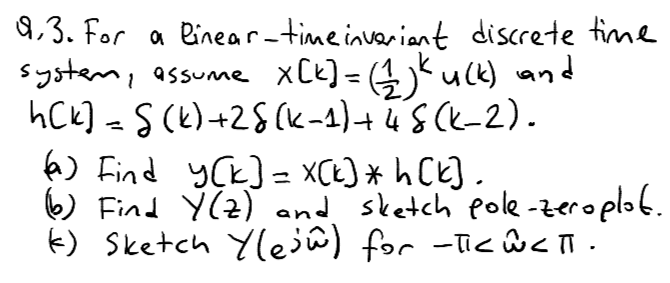 Q.3. For a linear-time invariant discrete time
system, assume x[k] = (1/2)^k u(k) and
h[k] = δ(k)+2δ(k-1)+4δ(k-2).
(a) Find y[k] = x[k] * h[k].
(b) Find Y(z) and sketch pole-zero plot.
(c) Sketch Y(e^jω̂) for -π<ω̂<π.